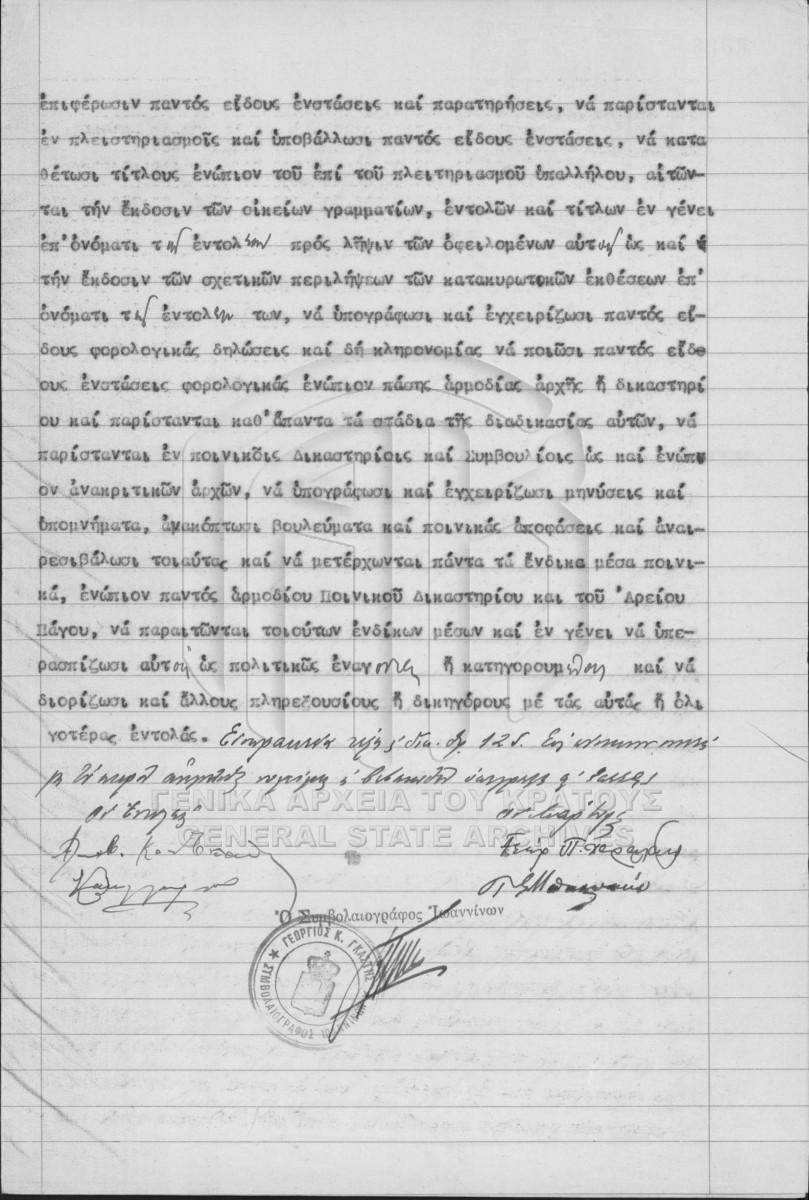 ἐπιφέρωσιν παντός εἴδους ἐνστάσεις καί παρατηρήσεις, νά παρίστανται
ἐν πλειστηριασμοῖς καί ὑποβάλλωσι παντός εἴδους ἐνστάσεις, νά κατα
θέτωσι τίτλους ἐνώπιον τοῦ ἐπί τοῦ πλειτηριασμοῦ ὑπαλλήλου, αἰτῶν-
ται τήν ἔκδοσιν τῶν οἰκείων γραμματίων, ἐντολῶν καί τίτλων ἐν γένει
ἐπ'ὀνόματι τῶν ἐντολέων πρός λῆψιν τῶν ὀφειλομένων αὐτοῖς ὡς καί ἡ
τήν ἔκδοσιν τῶν σχετικῶν περιλήψεων τῶν κατακυρωτικῶν ἐκθέσεων ἐπ'
ὀνόματι τῶν ἐντολέων των, νά ὑπογράφωσι καί ἐγχειρίζωσι παντός εἴ-
δους φορολογικάς δηλώσεις καί δή κληρονομίας νά ποιῶσι παντός εἴδο
ους ἐνστάσεις φορολογικάς ἐνώπιον πάσης ἁρμοδίας ἀρχῆς ἤ δικαστηρί
ου καί παρίστανται καθ'ἅπαντα τά στάδια τῆς διαδικασίας αὐτῶν, νά
παρίστανται ἐν ποινικοῖς Δικαστηρίοις καί Συμβουλίοις ὡς καί ἐνώπι
ον ἀνακριτικῶν ἀρχῶν, νά ὑπογράφωσι καί ἐγχειρίζωσι μηνύσεις καί
ὑπομνήματα, ἀνακόπτωσι βουλεύματα καί ποινικάς ἀποφάσεις καί ἀναι-
ρεσιβάλωσι τοιαύτας καί νά μετέρχωνται πάντα τά ἔνδικα μέσα ποινι-
κά, ἐνώπιον παντός ἁρμοδίου Ποινικοῦ Δικαστηρίου καί τοῦ Ἀρείου
Πάγου, νά παραιτῶνται τοιούτων ἐνδίκων μέσων καί ἐν γένει νά ὑπε-
ρασπίζωσι αὐτούς ὡς πολιτικῶς ἐνάγοντας ἤ κατηγορουμένους καί νά
διορίζωσι καί ἄλλους πληρεξουσίους ἤ δικηγόρους μέ τάς αὐτάς ἤ ὀλι
γοτέρας ἐντολάς.
ΓΕΝΙΚΑ ΑΡΧΕΙΑ ΤΟΥ ΚΡΑΤΟΥΣ
GENERAL STATE ARCHIVES
Ὁ Συμβολαιογράφος Ἰωαννίνων
ΓΕΩΡΓΙΟΣ Κ. ΓΚΑΣΤΗΣ
ΣΥΜΒΟΛΑΙΟΓΡΑΦΟΣ ΙΩΑΝΝΙΝΩΝ